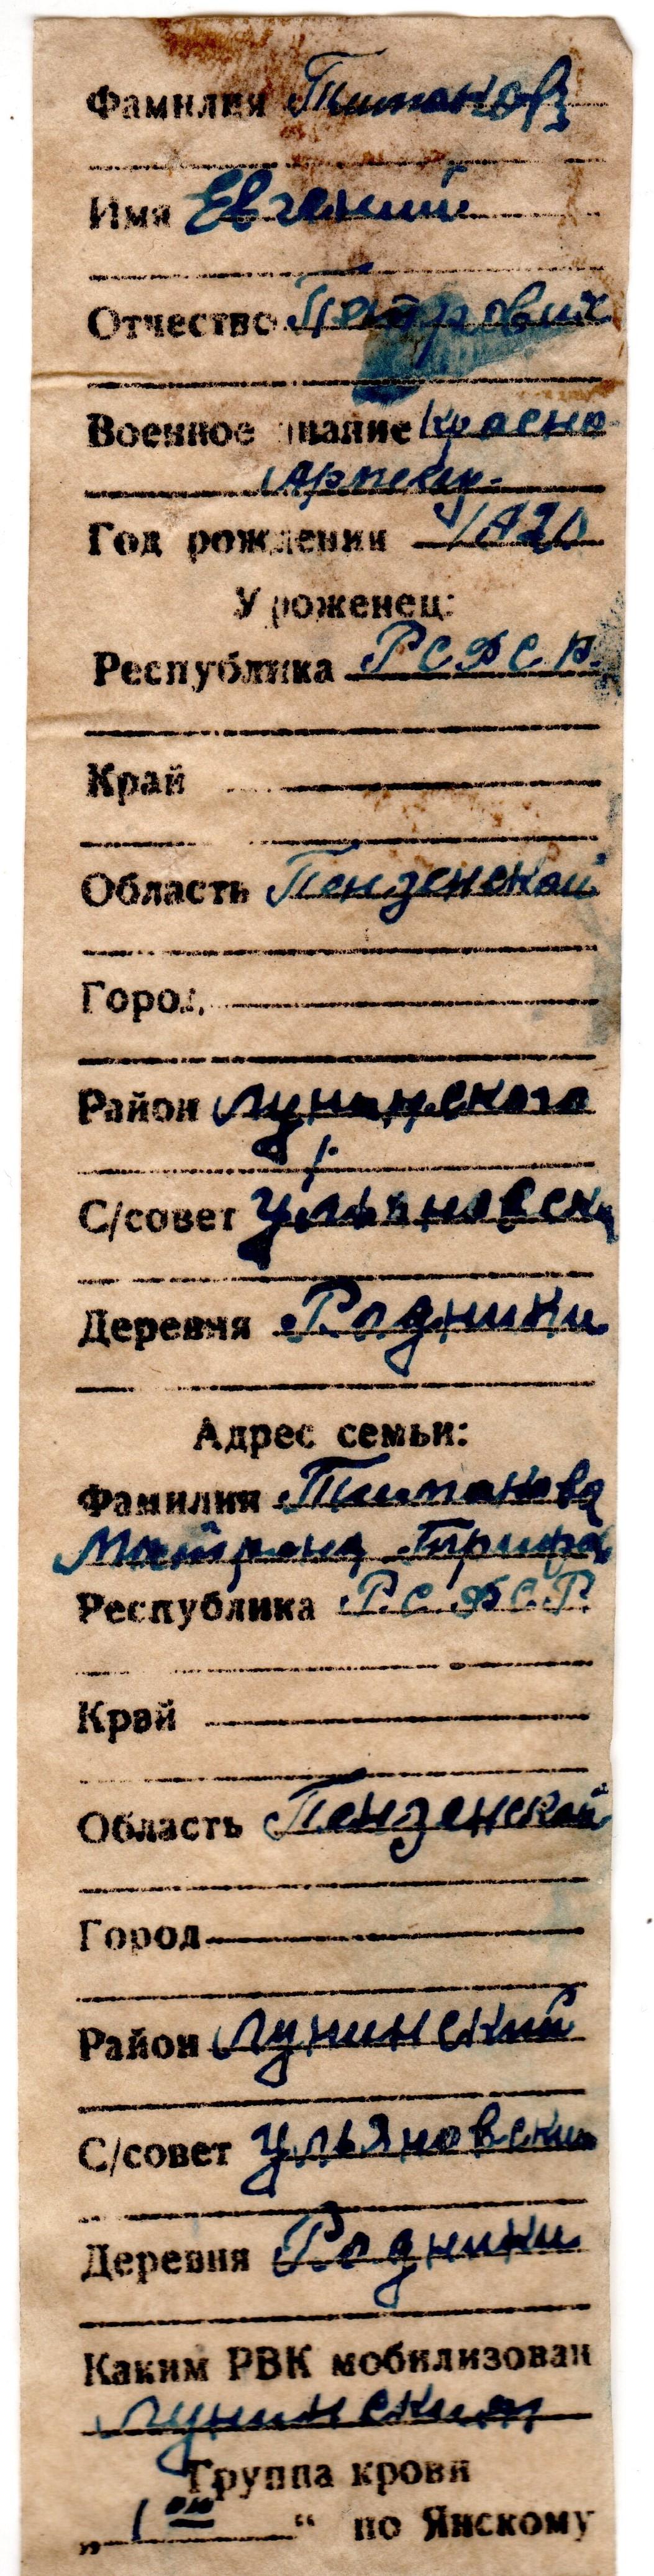 Фамилия Типанов
Имя Евгений
Отчество Петрович
Военное звание Красно-
армеец.
Год рождения
Уроженец:
Республика РСФСР.
Край
Область Пензенской
Город
Район Лунинского
С/совет Ульяновск
Деревня Родники
Адрес семьи:
Фамилия Типанова
Матрена
Республика Р.С.Ф.С.Р.
Край
Область Пензенской
Город
Район Лунинский
С/совет Ульяновский
Деревня Родники
Каким РВК мобилизован
Лунинским
Группа крови
„ 1 ой “ по Янскому